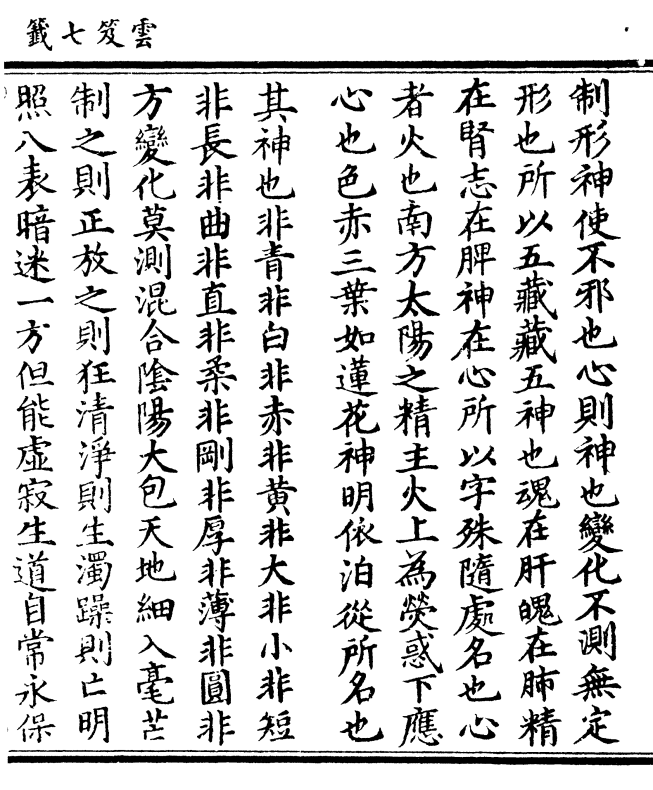 雲笈七籤
制形神使不邪也心則神也變化不測無定
形也所以五藏藏五神也魂在肝魄在肺精
在腎志在脾神在心所以字殊隨處名也心
者火也南方太陽之精主火上為熒惑下應
心也色赤三葉如蓮花神明依泊從所名也
其神也非青非白非赤非黄非大非小非短
非長非曲非直非柔非剛非厚非薄非圓非
方變化莫測混合陰陽大包天地細入毫芒
制之則正放之則狂清淨則生濁躁則亡明
照八表暗迷一方但能虛寂生道自常永保